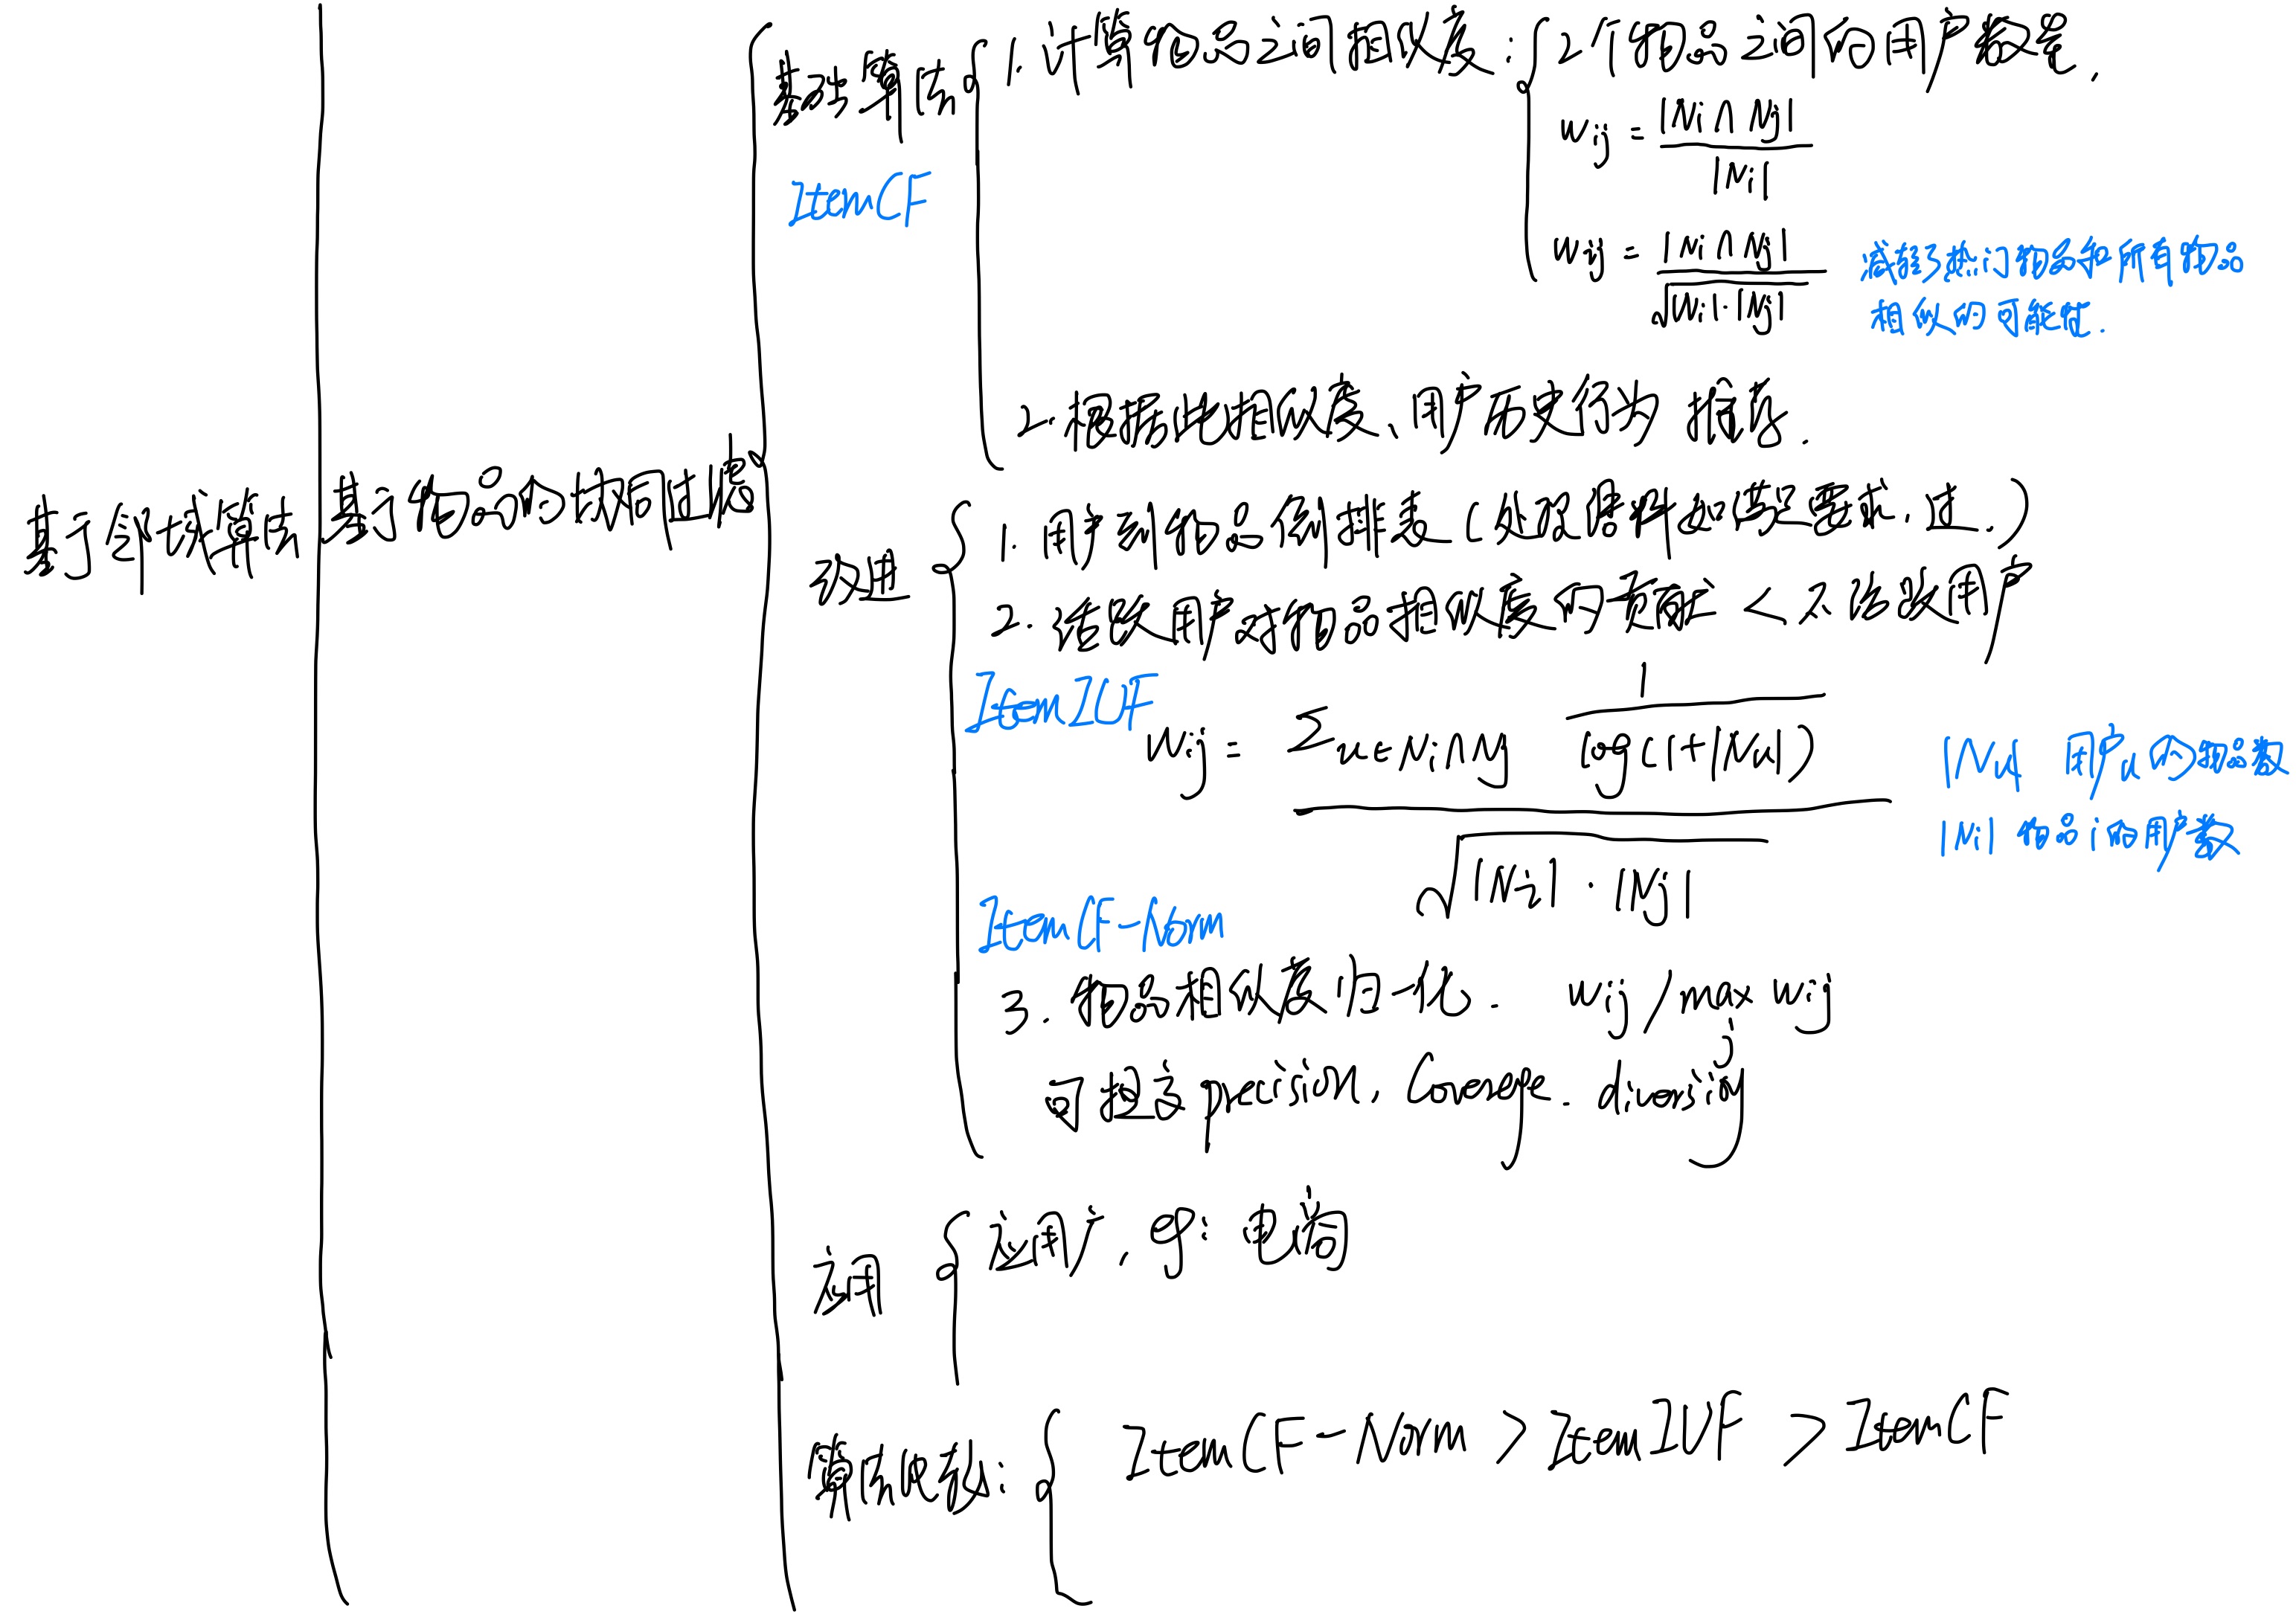 基于邻域算法
基于物品的协同过滤
基础算法
ItemCF
1. 计算物品之间相似度:
2个物品之间的用户数量.
wij = |Ni ∩ Nj| / |Ni|
wij = |Ni ∩ Nj| / √|Ni|·|Nj|
减轻了热门物品和所有物品
相似的可能性.
2. 根据此相似度、用户历史行为 推荐.
改进
1. 用户到物品倒排表(
2. 活跃用户对物品相似度的贡献 < 不活跃用户
ItemIUF
wij = Σu∈Ni∩Nj 1 / log(1+|Nu|) / √|Ni| · |Nj|
|Nu| 用户u的物品数
|Ni| 物品i的用户数
ItemCF-Norm
3. 物品相似度归一化. wij / max j wij
可提高 precision, Coverage. diversity
应用
, eg: 电商
算法比较:
ItemCF-Norm > ItemIUF > ItemCF